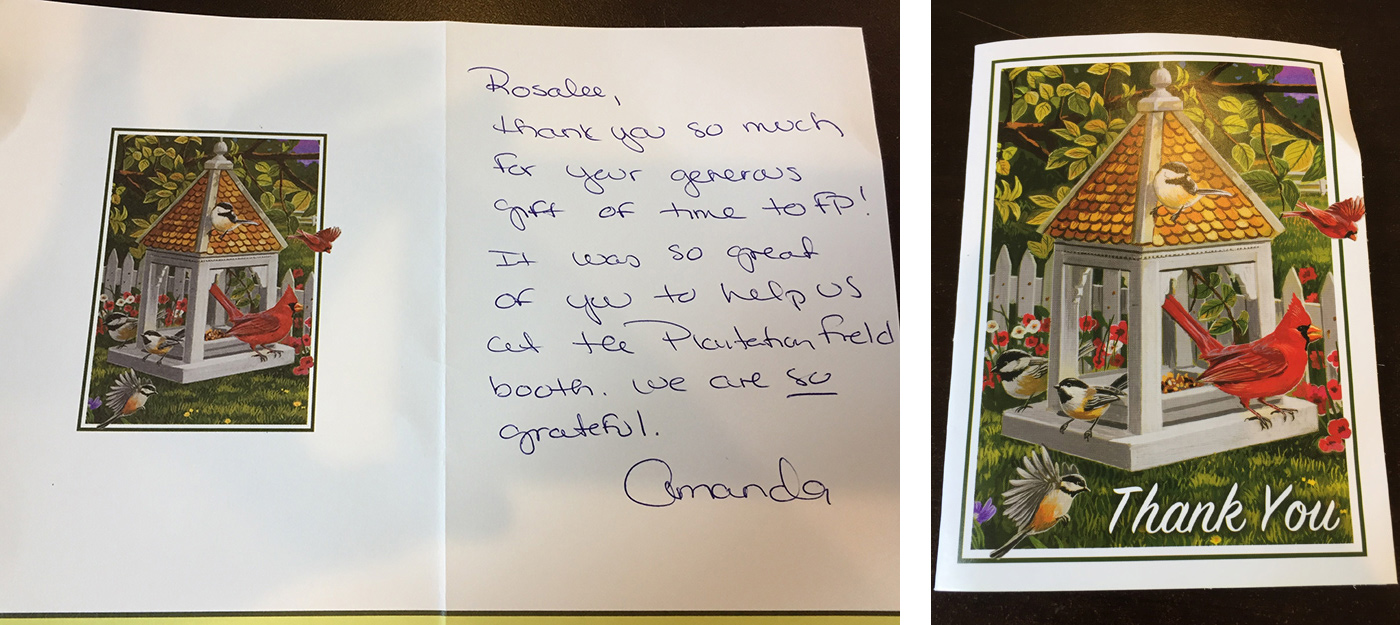 Rosalee,
thank you so much
for your generous
gift of time to FP!
It was so great
of you to help us
at the Plantation Field
booth. We are so
grateful.
Amanda
Thank You